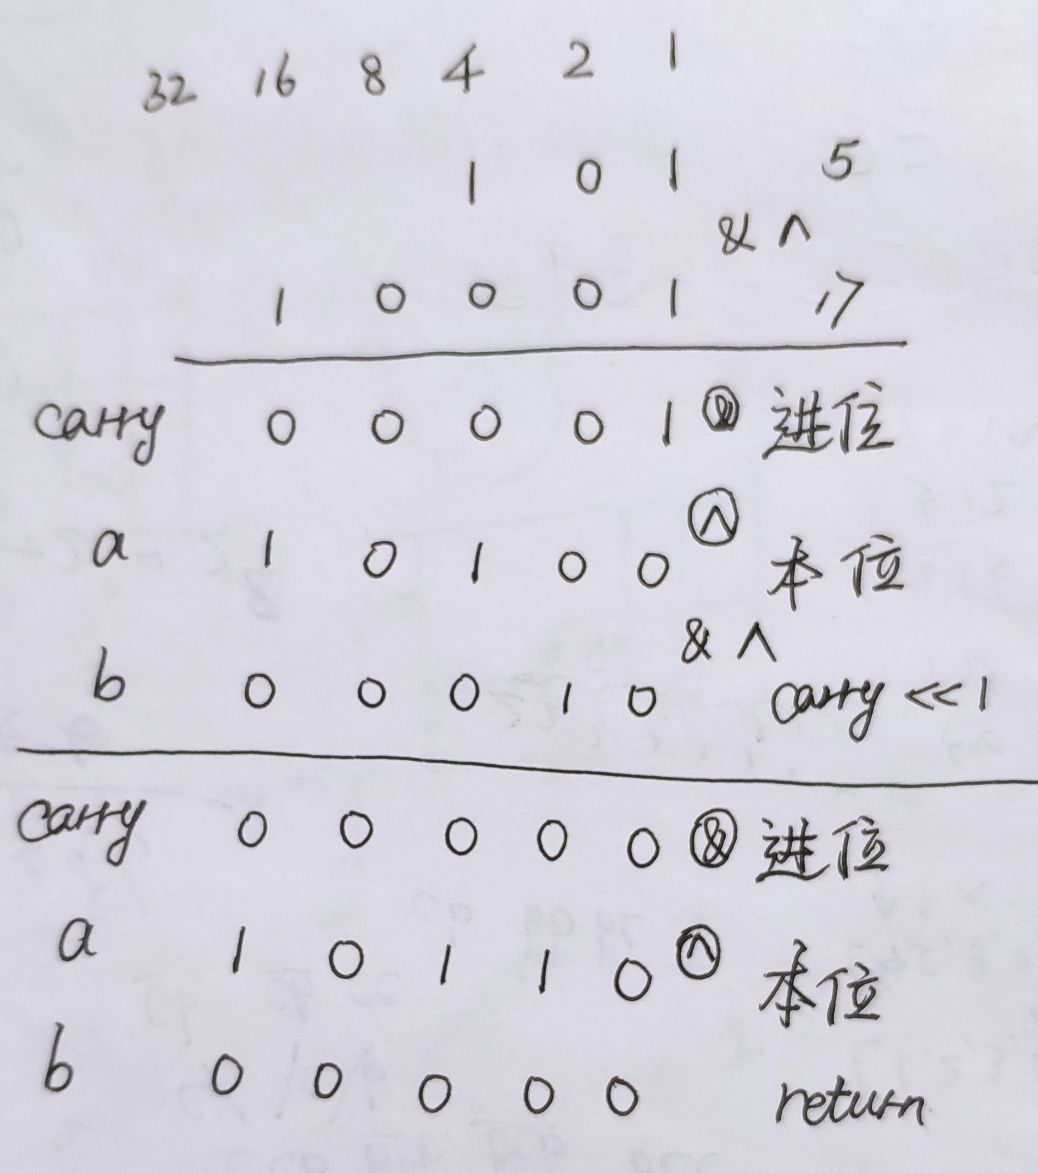 32 16 8 4 2 1
1 0 1 5
& ^
1 0 0 0 1 17
carry 0 0 0 0 1 & 进位
a 1 0 1 0 0 ^ 本位
& ^
b 0 0 0 1 0 carry <<1
carry 0 0 0 0 0 & 进位
a 1 0 1 1 0 ^ 本位
b 0 0 0 0 0 return